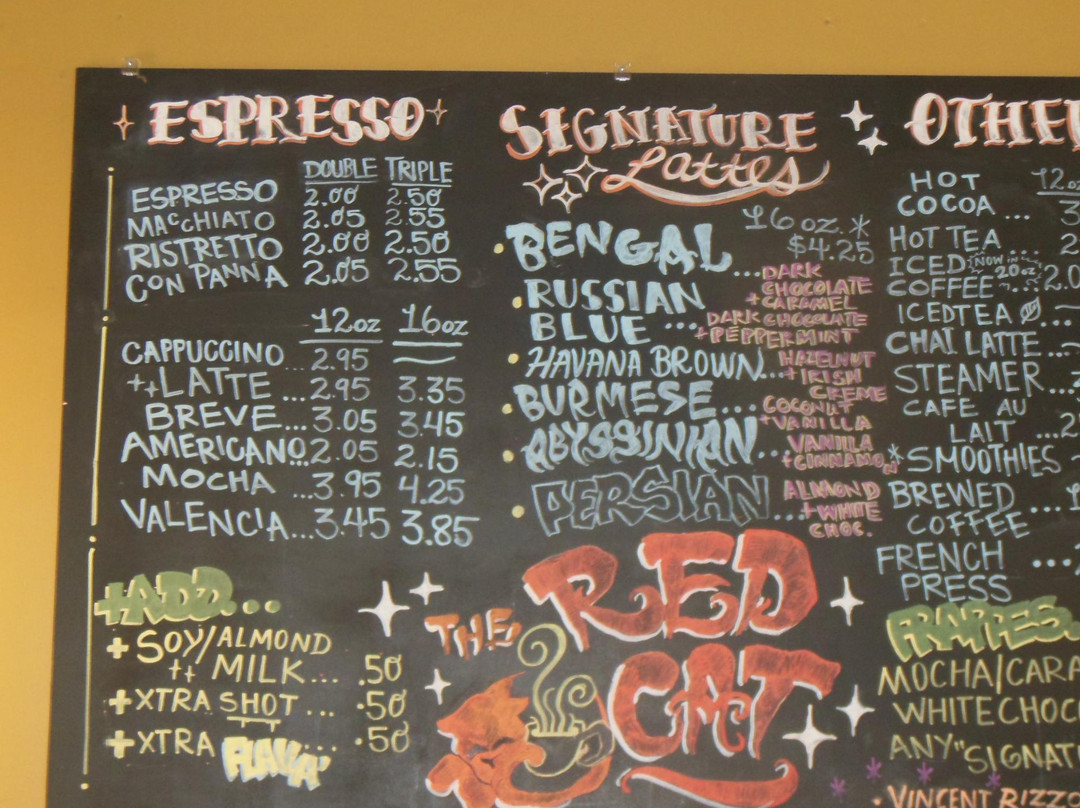 ESPRESSO
DOUBLE TRIPLE
ESPRESSO 2.00 2.50
MACCHIATO 2.05 2.55
RISTRETTO 2.00 2.50
CON PANNA 2.05 2.55
12oz 16oz
CAPPUCCINO... 2.95 —
LATTE... 2.95 3.35
BREVE... 3.05 3.45
AMERICANO 2.05 2.15
MOCHA ... 3.95 4.25
VALENCIA... 3.45 3.85
+ADD...
+ SOY/ALMOND
MILK... .50
+ XTRA SHOT ... .50
+ XTRA FLAVA ... .50
SIGNATURE
Lattes
16 oz. *
$4.25
BENGAL ... DARK
CHOCOLATE
+ CARAMEL
RUSSIAN
BLUE ... DARK CHOCOLATE
+ PEPPERMINT
HAVANA BROWN... HAZELNUT
+ IRISH
CREME
BURMESE... COCONUT
+ VANILLA
ABYSSINIAN... VANILLA
+ CINNAMON
PERSIAN... ALMOND
+ WHITE
CHOC.
THE RED
CAT
OTHE
12o
HOT
COCOA ... 3
HOT TEA ... 2
ICED NOW IN 20oz
COFFEE... 2.0
ICED TEA ...
CHAI LATTE ...
STEAMER...
CAFE AU
LAIT ...2
*SMOOTHIES
BREWED ...
COFFEE
FRENCH ...
PRESS
FRAPPES.
MOCHA/CARA
WHITE CHOC
ANY "SIGNAT
VINCENT RIZZO